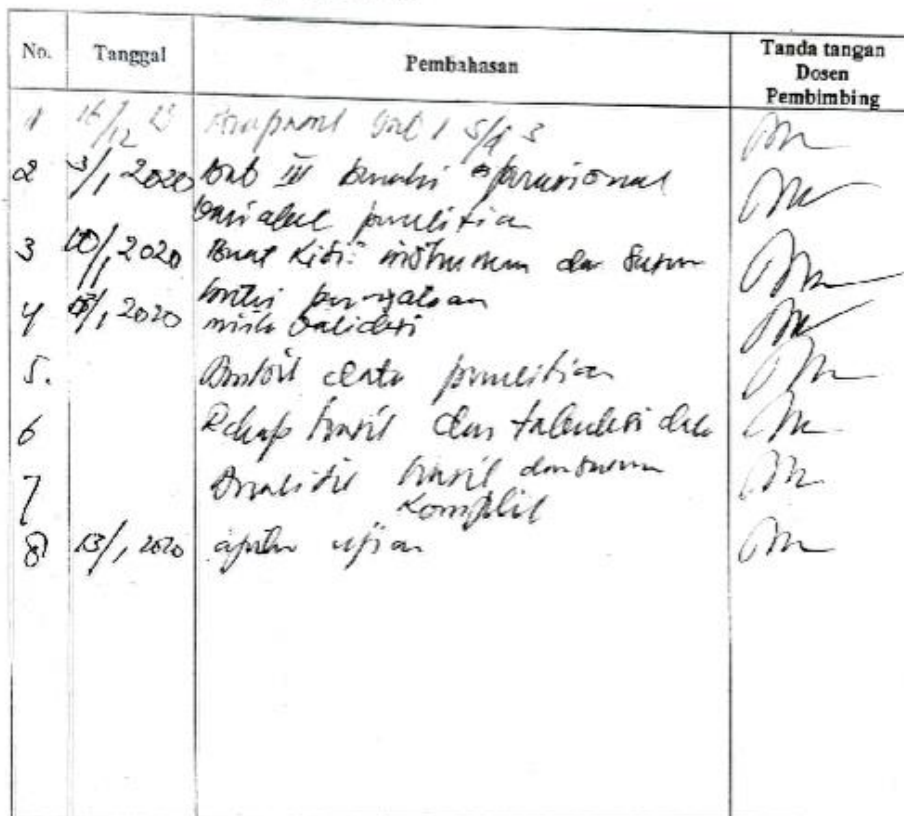 No. Tanggal Pembahasan Tanda tangan
Dosen
Pembimbing
1 16/12 19 bab 1 s/d 3
2 3/1 2020 bab III operasional
variabel penelitian
3 10/1 2020 Buat kisi² instrumen dan susun
butir pernyataan
4 /1 2020 validasi
5. data penelitian
6 Rekap hasil dan tabulasi data
7 Analisis hasil dan susun
komplit
8 13/1 2020 ujian